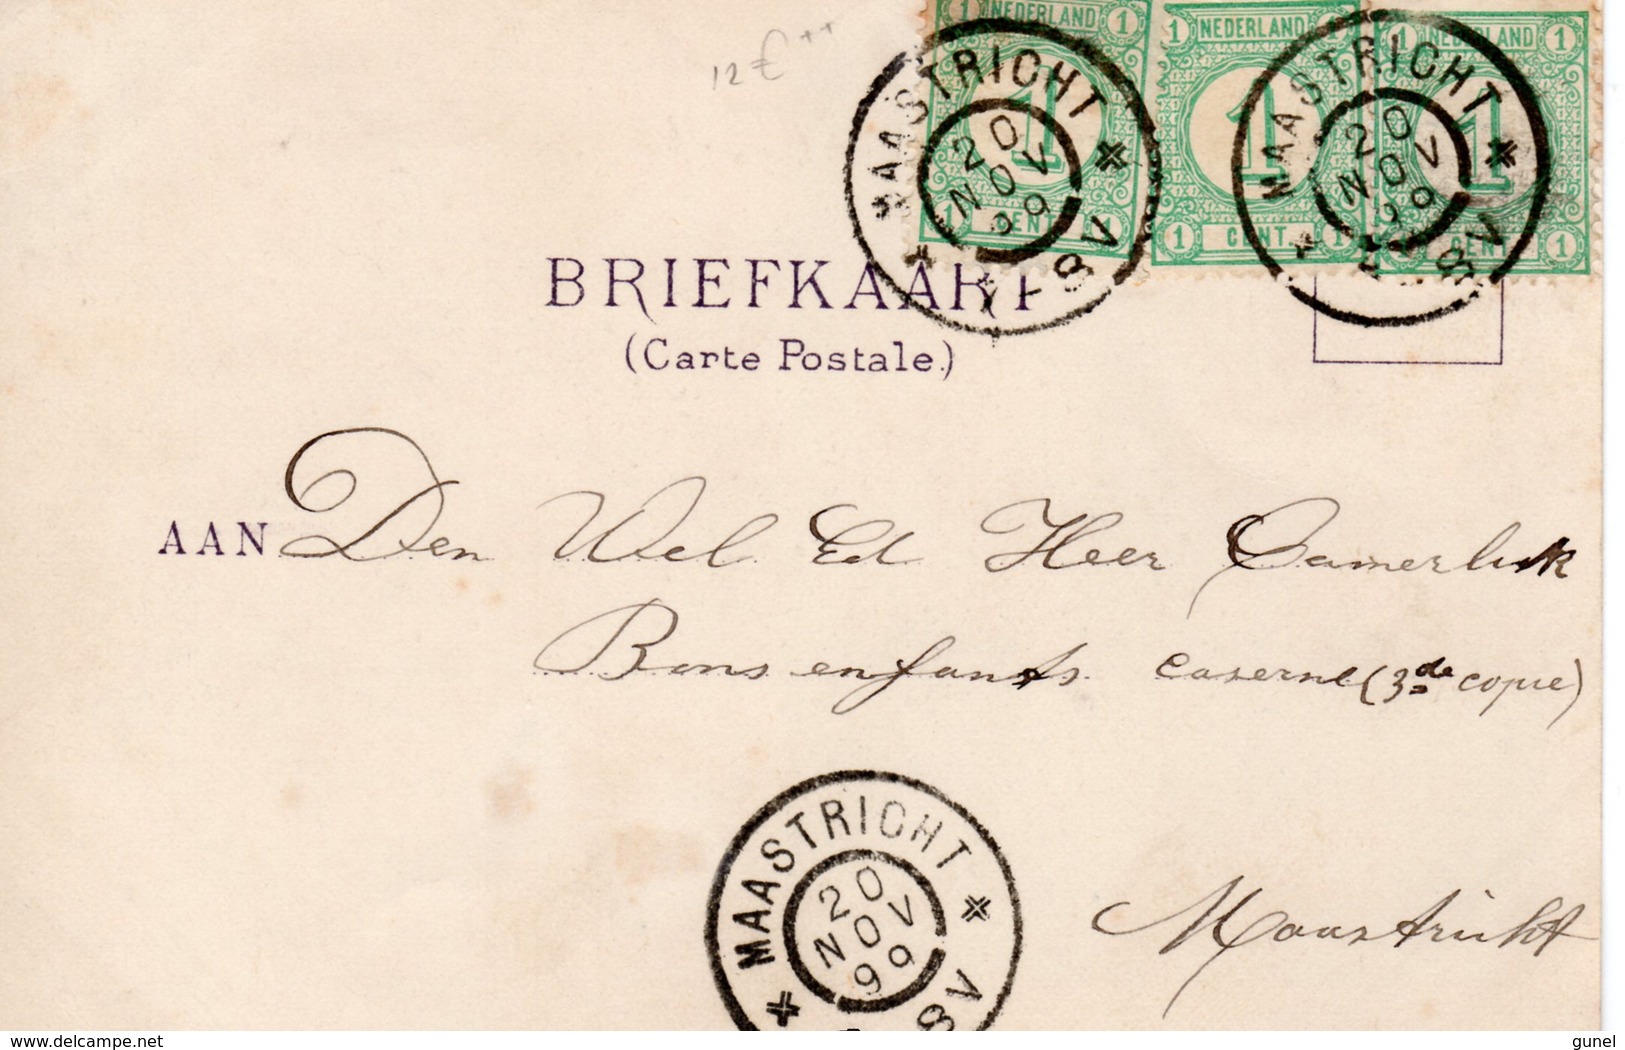 12 € ++
1 NEDERLAND 1
1 NEDERLAND 1
1 NEDERLAND 1
1
1
1
1 CENT 1
1 CENT. 1
CENT 1
MAASTRICHT
20
NOV
99
8V
MAASTRICHT
20
NOV
99
8V
BRIEFKAART
(Carte Postale.)
AAN Den Wel Ed Heer
Bons enfants caserne (3de copie)
MAASTRICHT
20
NOV
99
8V
Maastricht
delcampe.net
gunel